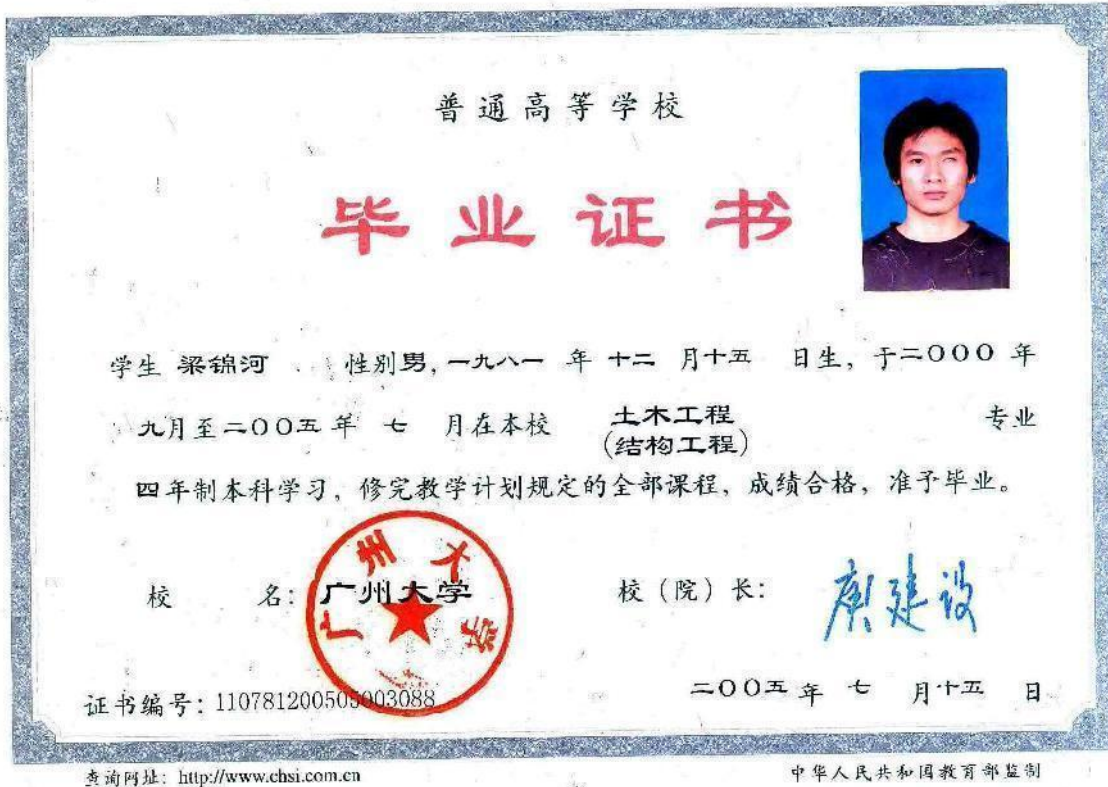 普通高等学校
毕业证书
学生 梁锦河 性别男,一九八一 年 十二 月十五 日生，于二〇〇〇 年
九月至二〇〇五年 七 月在本校 土木工程 专业
(结构工程)
四年制本科学习，修完教学计划规定的全部课程，成绩合格，准予毕业。
校 名：广州大学 校（院）长：庾建设
广州大学
证书编号：110781200505003088 二〇〇五 年 七 月十五 日
查询网址：http://www.chsi.com.cn 中华人民共和国教育部监制